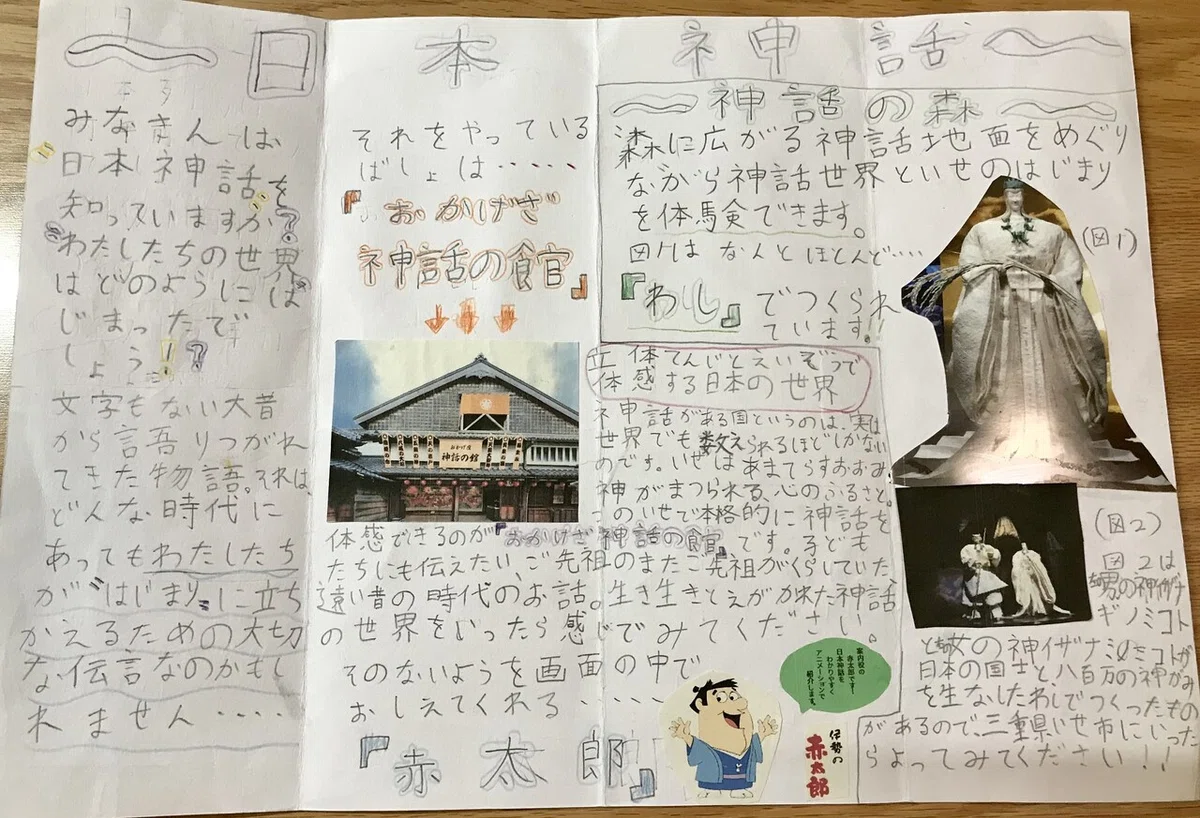 ～日本神話～
みなさんは
日本神話を
知っていますか?
わたしたちの世界は
はどのように
じまったで
しょう!?
文字もない大昔
から語りつがれ
てきた物語。それは、
どんな時代に
あってもわたしたち
が"はじまり"に立ち
かえるための大切
な伝言なのかもし
れません‥‥
それをやっている
ばしょは‥‥‥
『おかげざ
神話の館』
↓↓↓
おかげ座
神話の館
体感できるのが『おかげざ神話の館』です。子ども
たちにも伝えたい、ご先祖のまたご先祖がくらしていた
遠い昔の時代のお話。生き生きとえがかれた神話
の世界をいったら感じでみてください。
そのないようを画面の中で
おしえてくれる‥‥
『赤太郎』
案内役の
赤太郎です!
日本神話を
わかりやすく
アニメーションで
紹介します。
伊勢の
赤太郎
～神話の森～
森に広がる神話地面をめぐり
ながら神話世界といせのはじまり
を体験できます。
図1はなんとほとんど‥‥
『わし』でつくられ
ています!
(図1)
立体てんじとえいぞうで
体感する日本の世界
神話がある国というのは、実は
世界でも数えられるほどしかない
のです。いせはあまてらすおおみ
神がまつられる、心のふるさと。
このいせで本格的に神話を
(図2)
図2は
男の神イザナ
ギノミコト
と女の神イザナミノミコトが
日本の国土と八百万の神がみ
を生なしたわしでつくったもの
があるので、三重県いせ市にいった
らよってみてください!!